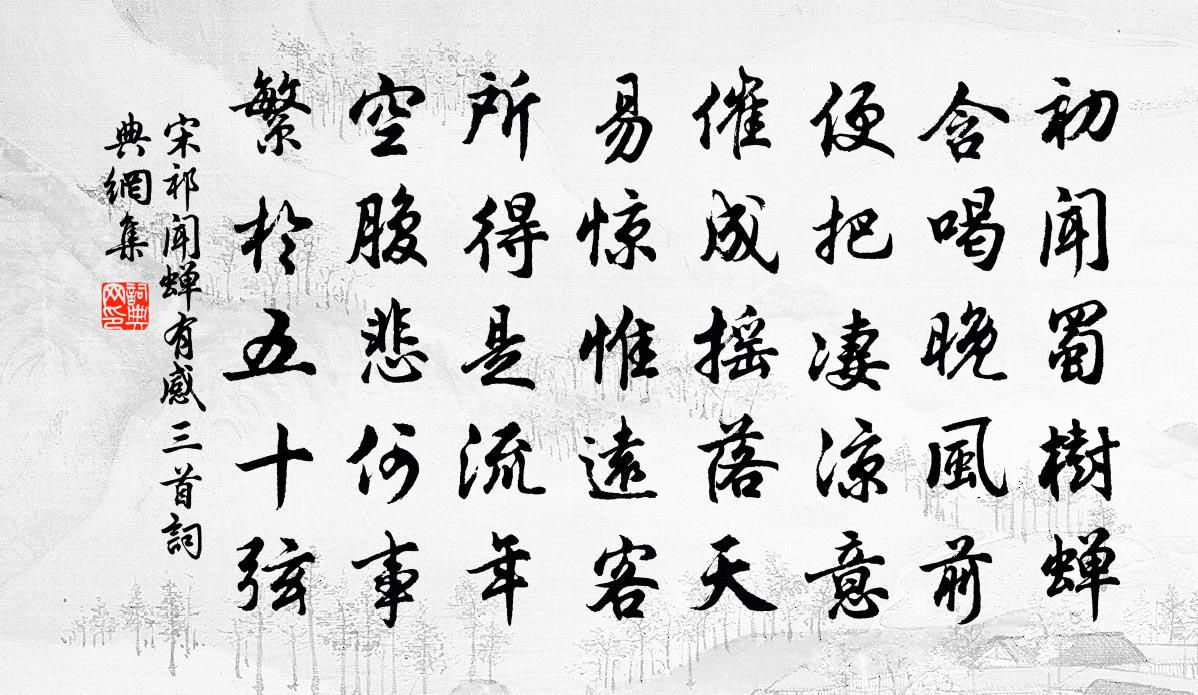 初闻蜀樹蝉
含喝晚風前
便把凄凉意
催成摇落天
易惊惟遠客
所得是流年
空腹悲何事
繁於五十弦
宋祁闻蝉有感三首詞
典網集
詞典网印